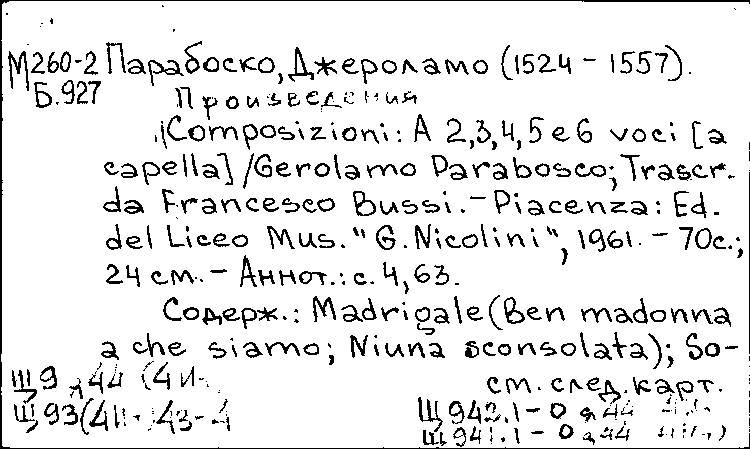 М260-2 Парабоско, Джероламо (1524 - 1557).
Б.927 Произведения
Composizioni: A 2,3,4,5 e 6 voci [a
capella] / Gerolamo Parabosco; Trascr.
da Francesco Bussi. - Piacenza: Ed.
del Liceo Mus. "G. Nicolini", 1961. - 70с.;
24 см. - Аннот.: с. 4, 63.
Содерж.: Madrigale (Ben madonna
a che siamo; Niuna sconsolata); So-
Щ9 я44 (4И- см. след. карт.
Щ93(4И- )43-4 Щ942.1-0 я44
Щ941.1-0 я44